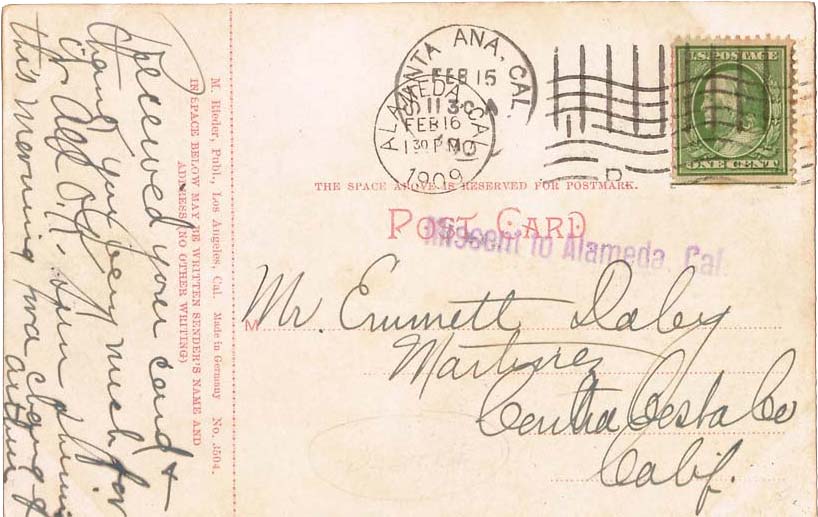 SANTA ANA, CAL.
FEB 15
11 30 A
ALAMEDA, CAL.
FEB 16
1 30 PM
1909
U.S. POSTAGE
ONE CENT
THE SPACE ABOVE IS RESERVED FOR POSTMARK.
POST CARD
Missent to Alameda, Cal.
Mr. Emmett Daley
Martinez
Contra Costa Co
Calif.
M. Rieder, Publ., Los Angeles, Cal. Made in Germany No. 3504.
IN SPACE BELOW MAY BE WRITTEN SENDER'S NAME AND
ADDRESS (NO OTHER WRITING)
Received your card &
thank you very much for
it. All O.K. Sun shining
this morning for a change